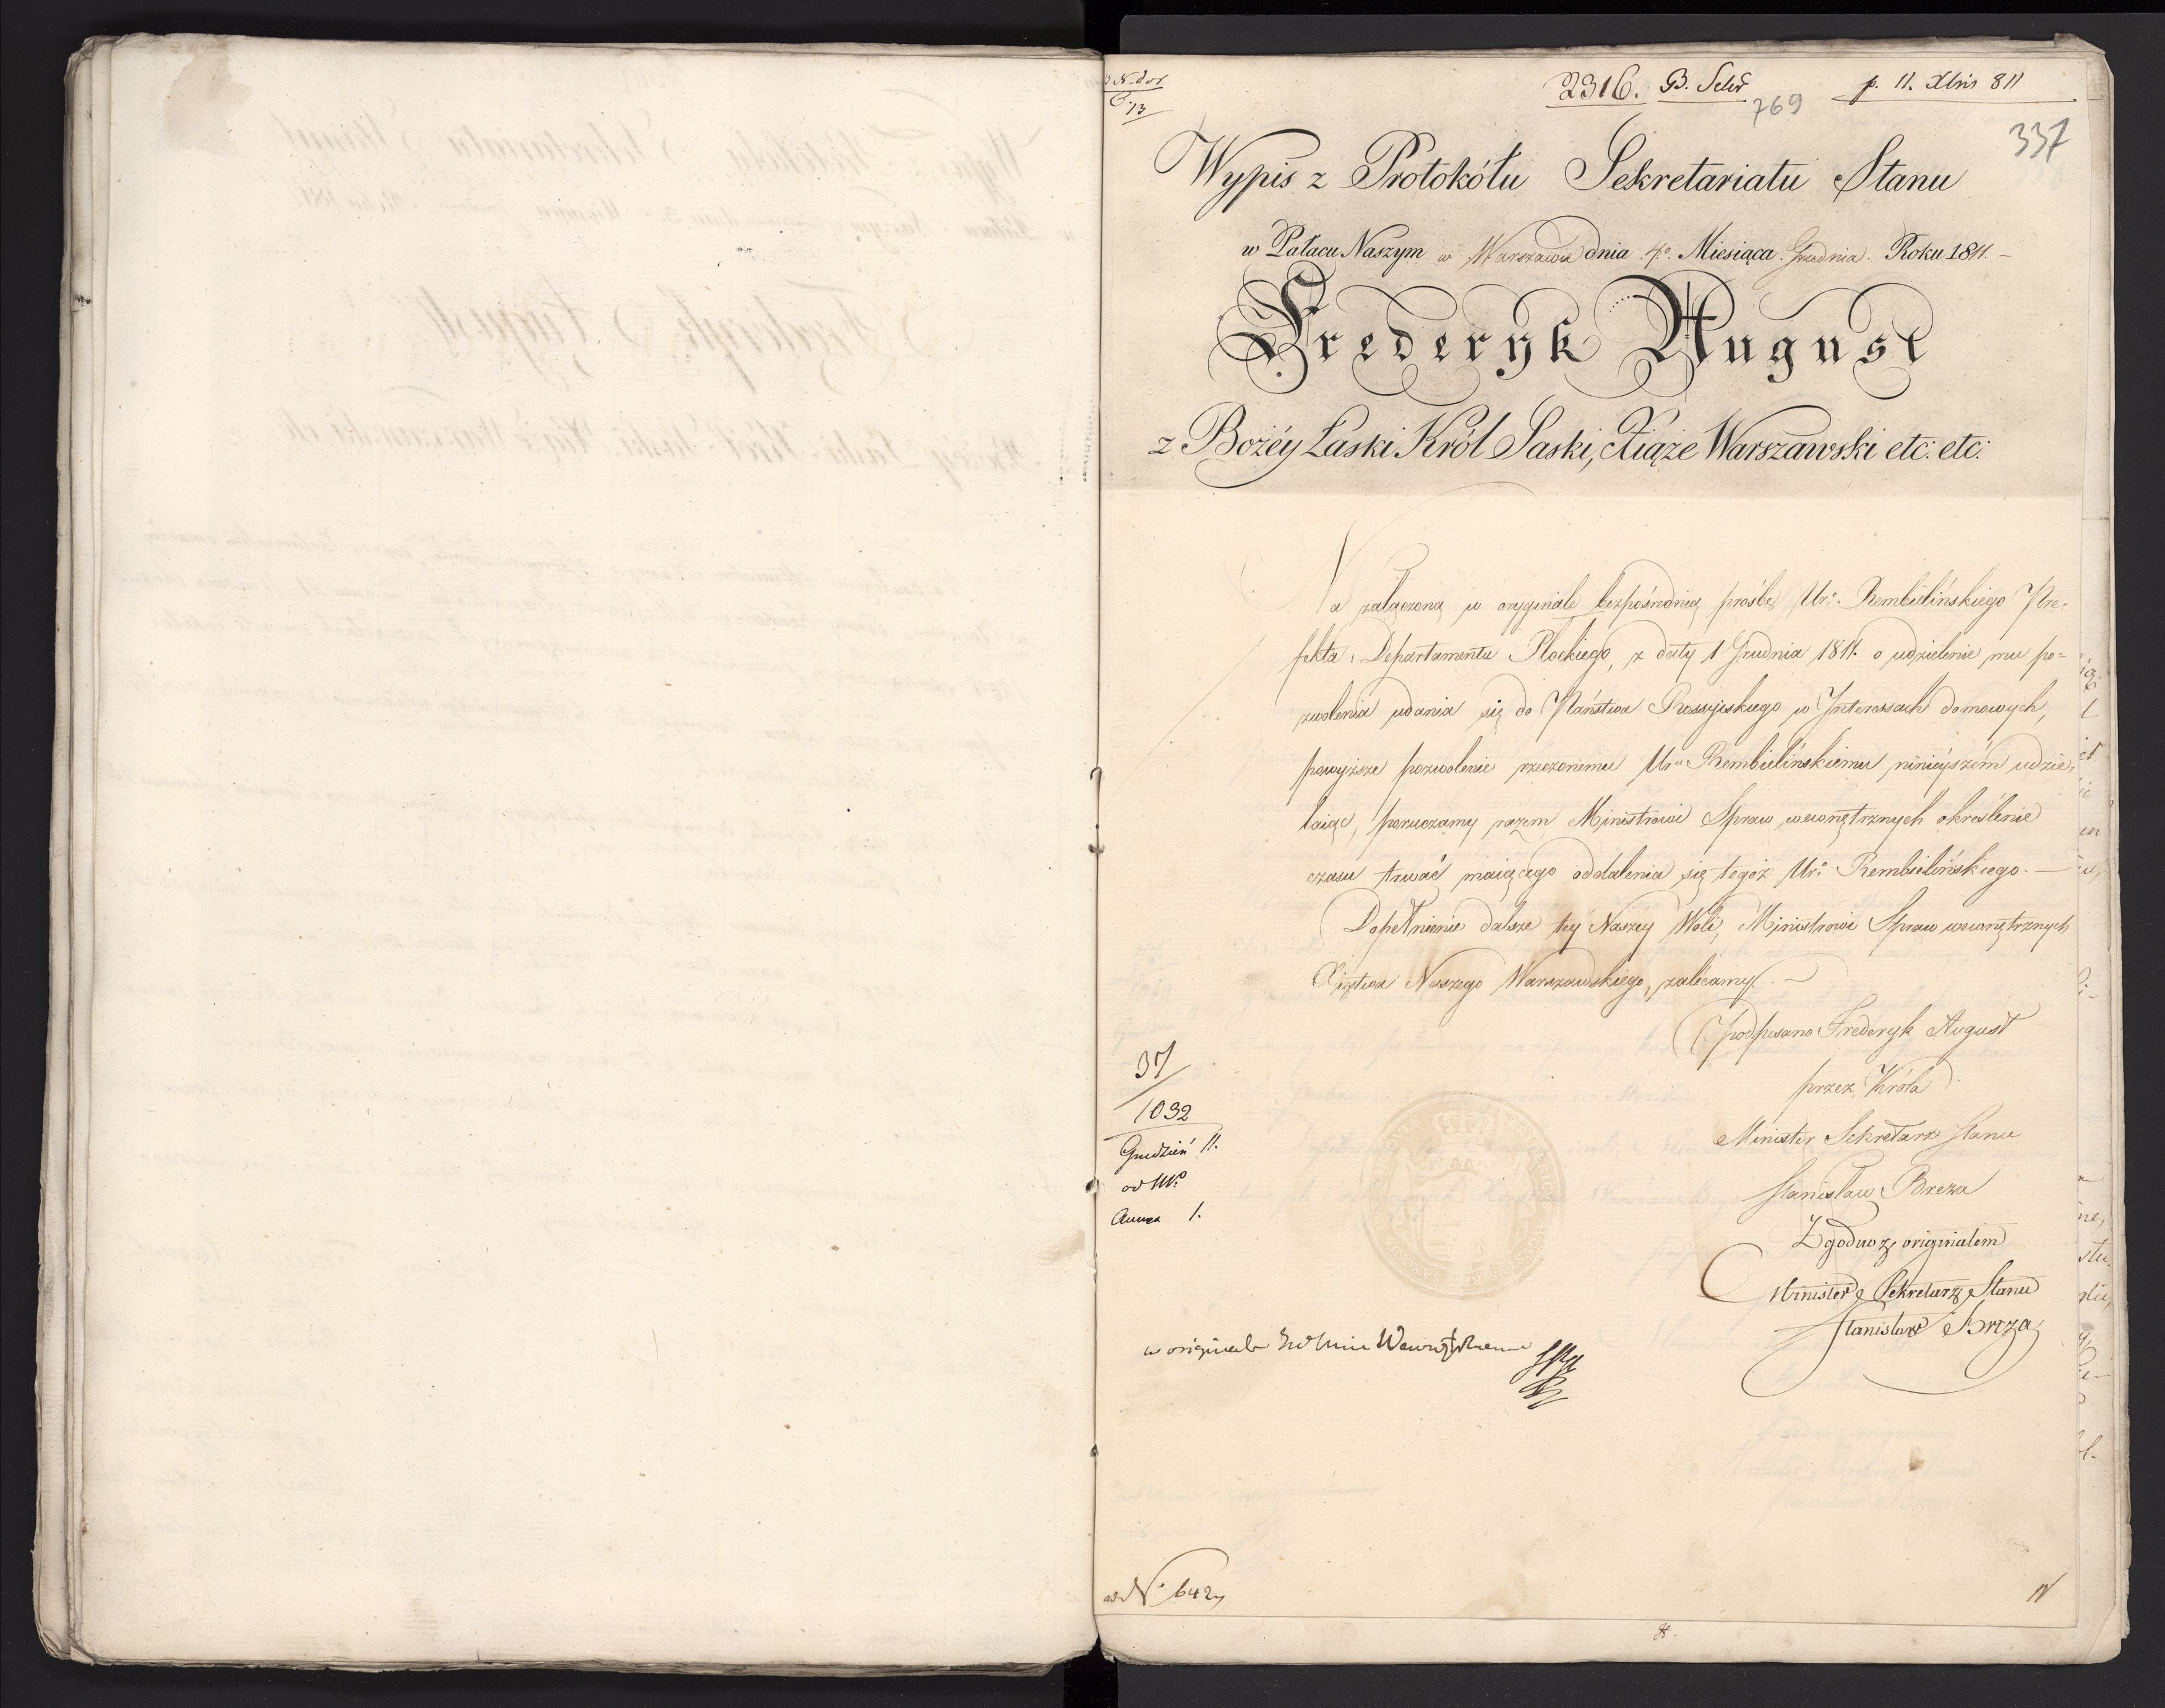 N. dor
C. 13
2316. B. Sekr
p. 11. Xbris 811
769
337
Wypis z Protokółu Sekretariatu Stanu
w Pałacu Naszym w Warszawie dnia 4º. Miesiąca Grudnia. Roku 1811.
Frederyk August
z Bożéy Łaski Król Saski, Xiąże Warszawski etc: etc:
Na załączoną w oryginale bezpośrednią prośbę Urº. Rembielińskiego Pre=
fekta Departamentu Płockiego, z daty 1 Grudnia 1811. o udzielenie mu po=
zwolenia udania się do Państwa Rossyiskiego w Interessach domowych,
powyższe pozwolenie rzeczonemu Urᵘ Rembielińskiemu ninieyszém udzie=
laiąc, poruczamy razem Ministrowi Spraw wewnętrznych okréślenie
czasu trwać maiącego oddalenia się tegoż Urº Rembielińskiego. —
Dopełnienie dalsze tey Naszey Woli, Ministrowi Spraw wewnętrznych
Xięstwa Naszego Warszawskiego, zalecamy. —
(podpisano Frederyk August
przez Króla
Minister Sekretarz Stanu
Stanisław Breza
Zgodno z originałem
Minister Sekretarz Stanu
Stanisław Breza
37
1032
Grudzień 11.
od
Annex 1.
w originale
Nº 642